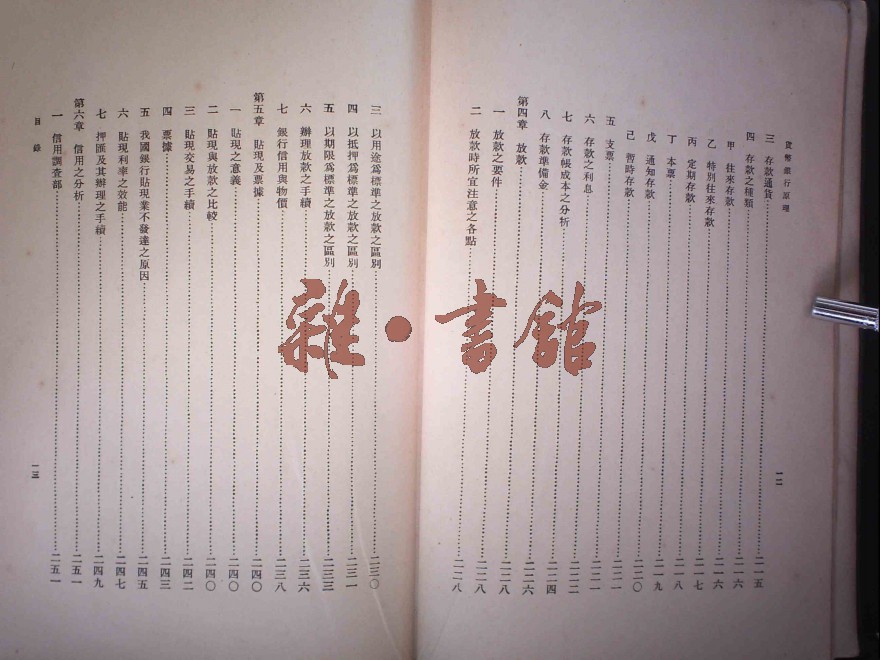 貨幣銀行原理 一二
三 存款通貨……二一五
四 存款之種類……二一六
甲 往來存款……二一六
乙 特別往來存款……二一七
丙 定期存款……二一八
丁 本票……二一九
戊 通知存款……二二〇
己 暫時存款……二二一
五 支票……二二一
六 存款之利息……二二二
七 存款帳成本之分析……二二四
八 存款準備金……二二六
第四章 放款……二二八
一 放款之要件……二二八
二 放款時所宜注意之各點……二二八
三 以用途爲標準之放款之區別……二三〇
四 以抵押爲標準之放款之區別……二三一
五 以期限爲標準之放款之區別……二三三
六 辦理放款之手續……二三六
七 銀行信用與物價……二三八
第五章 貼現及票據……二四〇
一 貼現之意義……二四〇
二 貼現與放款之比較……二四〇
三 貼現交易之手續……二四二
四 票據……二四三
五 我國銀行貼現業不發達之原因……二四五
六 貼現利率之效能……二四七
七 押匯及其辦理之手續……二四九
第六章 信用之分析……二五一
一 信用調查部……二五一
目錄 一三
雜·書館